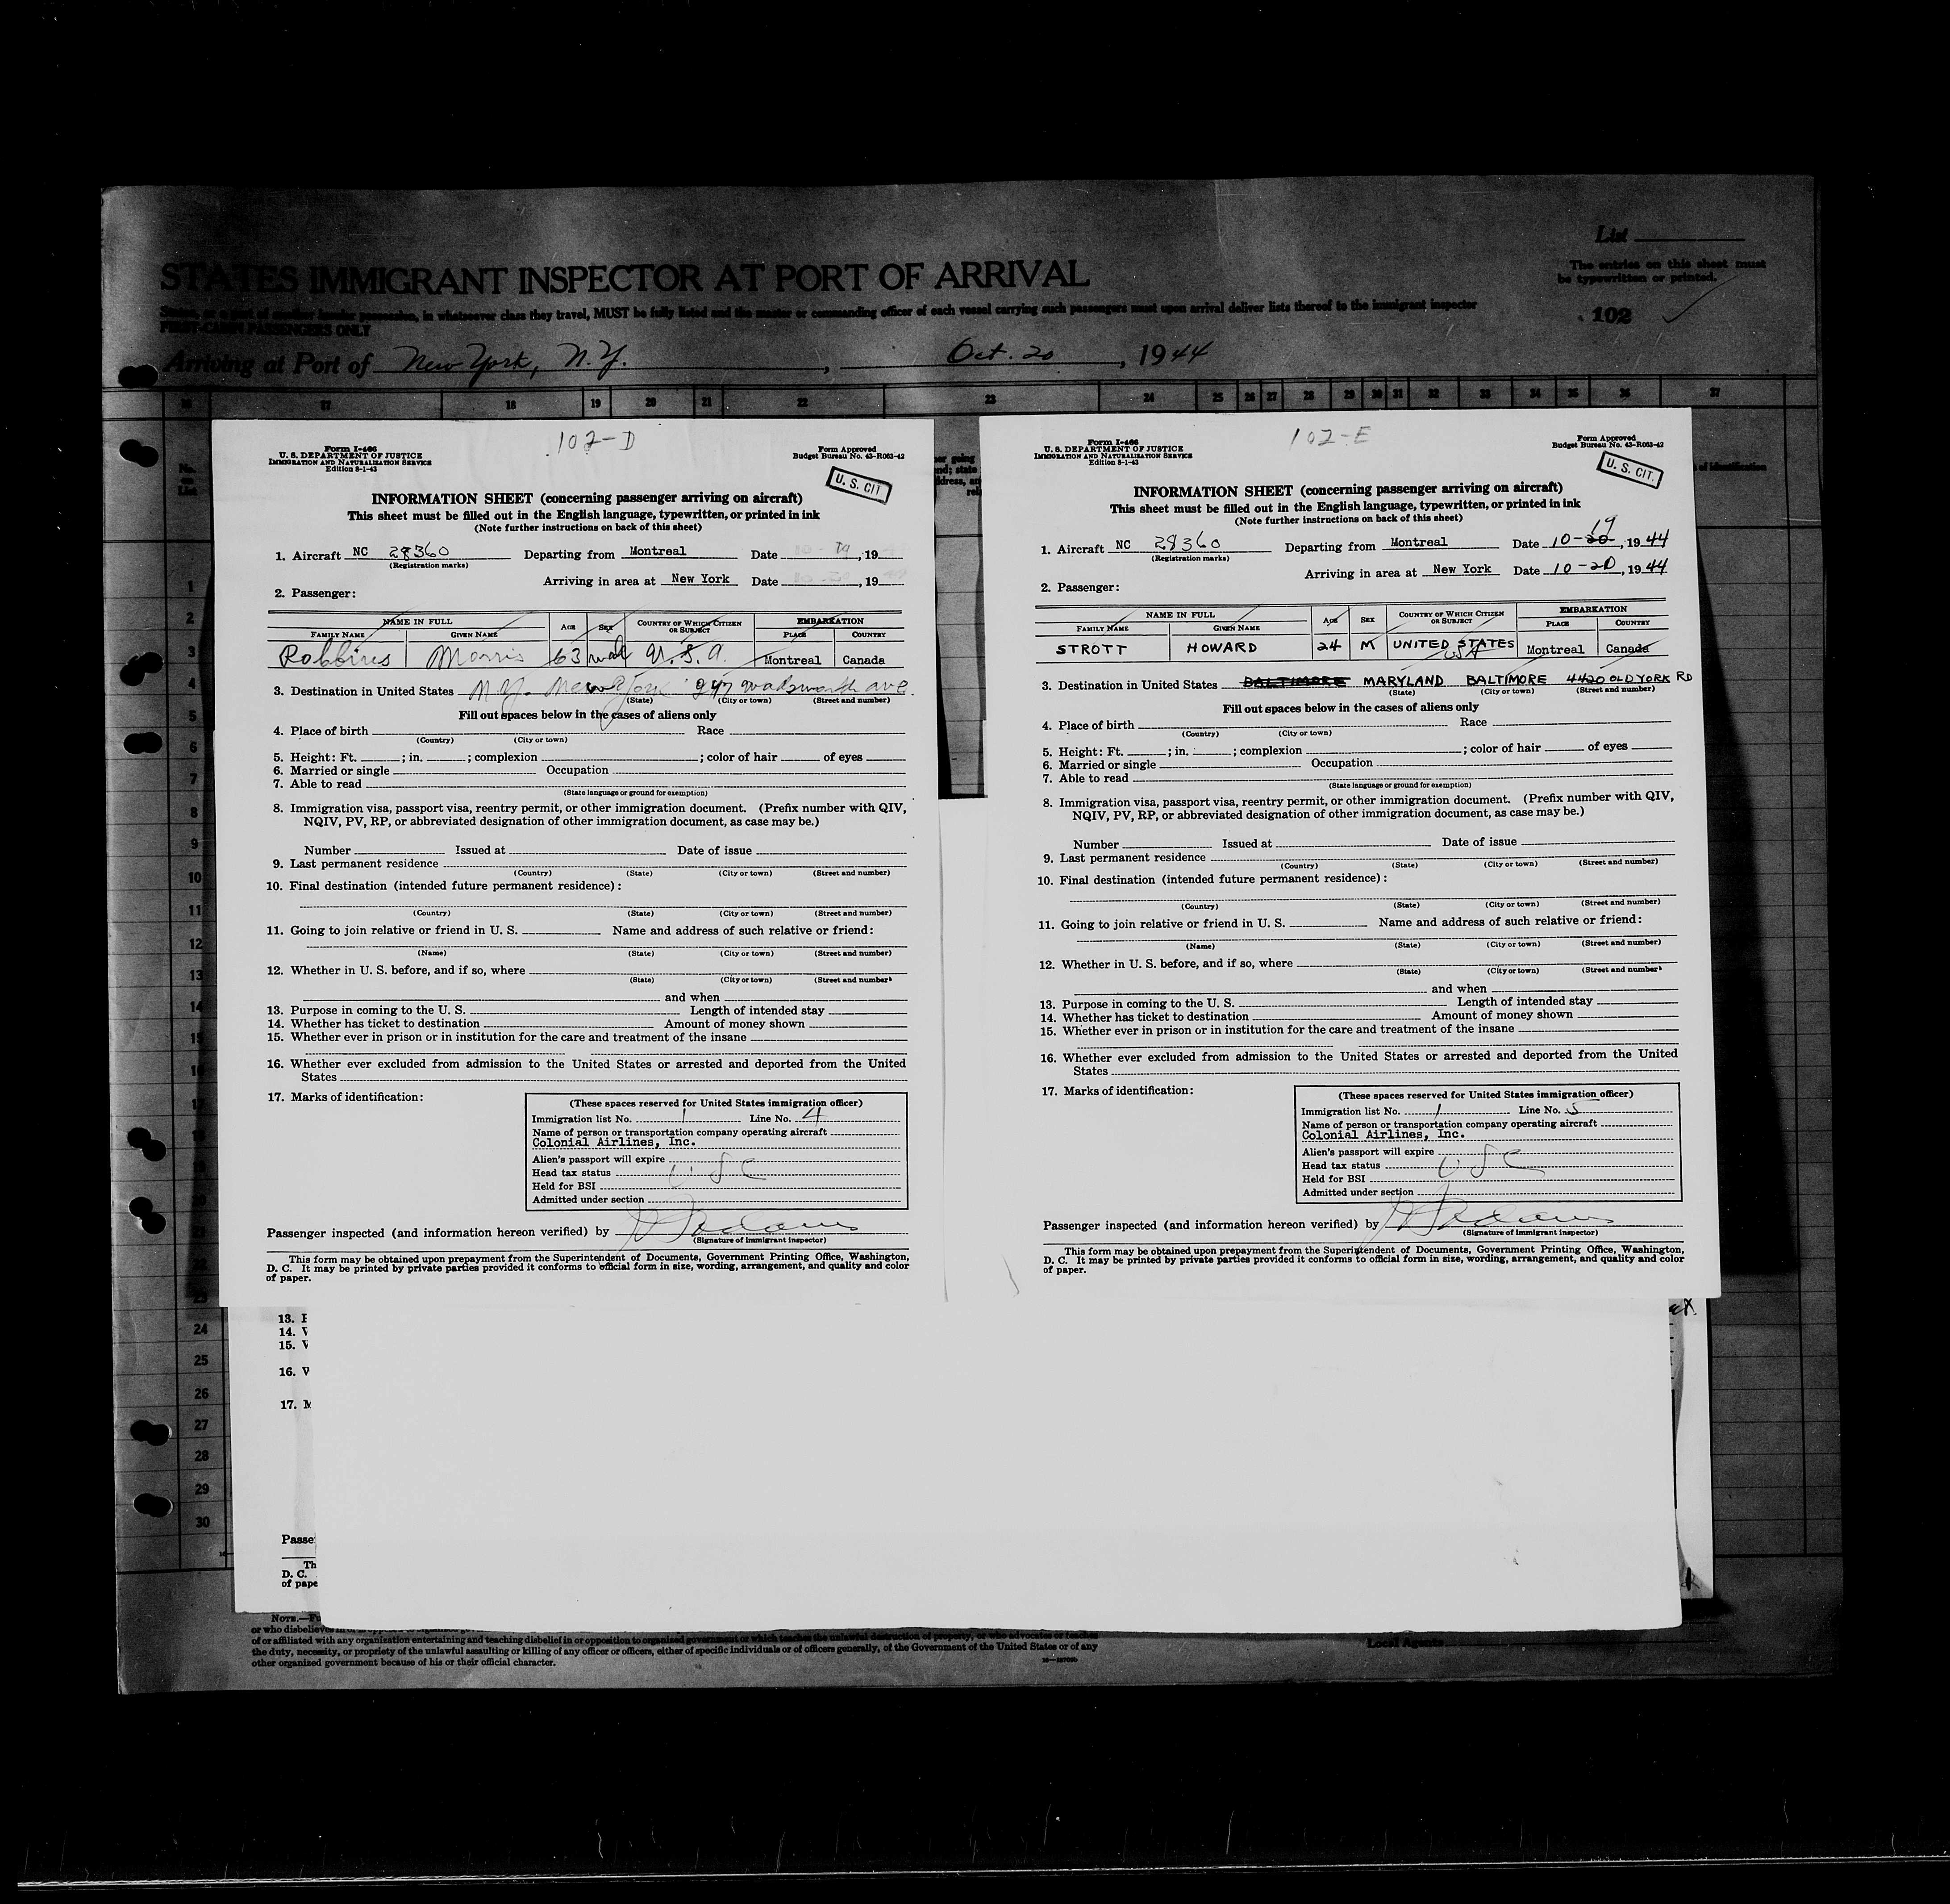 List
STATES IMMIGRANT INSPECTOR AT PORT OF ARRIVAL
The entries on this sheet must
be typewritten or printed.
in whatsoever class they travel, MUST be fully listed and the master or commanding officer of each vessel carrying such passengers must upon arrival deliver lists thereof to the immigrant inspector
FIRST-CABIN PASSENGERS ONLY
102
Arriving at Port of New York, N.Y., Oct. 20, 1944
17 18 19 20 21 22 23 24 25 26 27 28 29 30 31 32 33 34 35 36 37
102-D
Form I-466
U. S. DEPARTMENT OF JUSTICE
IMMIGRATION AND NATURALIZATION SERVICE
Edition 8-1-43
Form Approved
Budget Bureau No. 43-R063-42
U. S. CIT
INFORMATION SHEET (concerning passenger arriving on aircraft)
This sheet must be filled out in the English language, typewritten, or printed in ink
(Note further instructions on back of this sheet)
1. Aircraft NC 28360 Departing from Montreal Date 10 - 19, 19
(Registration marks)
Arriving in area at New York Date , 19
2. Passenger:
NAME IN FULL
FAMILY NAME GIVEN NAME AGE SEX COUNTRY OF WHICH CITIZEN OR SUBJECT EMBARKATION PLACE COUNTRY
Robbins Morris 63 mal U.S.A. Montreal Canada
3. Destination in United States N.Y. New York 247 Wadsworth ave.
(State) (City or town) (Street and number)
Fill out spaces below in the cases of aliens only
4. Place of birth Race
(Country) (City or town)
5. Height: Ft. ; in. ; complexion ; color of hair of eyes
6. Married or single Occupation
7. Able to read
(State language or ground for exemption)
8. Immigration visa, passport visa, reentry permit, or other immigration document. (Prefix number with QIV,
NQIV, PV, RP, or abbreviated designation of other immigration document, as case may be.)
Number Issued at Date of issue
9. Last permanent residence
(Country) (State) (City or town) (Street and number)
10. Final destination (intended future permanent residence):
(Country) (State) (City or town) (Street and number)
11. Going to join relative or friend in U. S. Name and address of such relative or friend:
(Name) (State) (City or town) (Street and number)
12. Whether in U. S. before, and if so, where
(State) (City or town) (Street and number)
and when
13. Purpose in coming to the U. S. Length of intended stay
14. Whether has ticket to destination Amount of money shown
15. Whether ever in prison or in institution for the care and treatment of the insane
16. Whether ever excluded from admission to the United States or arrested and deported from the United
States
17. Marks of identification:
(These spaces reserved for United States immigration officer)
Immigration list No. 1 Line No. 4
Name of person or transportation company operating aircraft
Colonial Airlines, Inc.
Alien's passport will expire
Head tax status USC
Held for BSI
Admitted under section
Passenger inspected (and information hereon verified) by
(Signature of immigrant inspector)
This form may be obtained upon prepayment from the Superintendent of Documents, Government Printing Office, Washington,
D. C. It may be printed by private parties provided it conforms to official form in size, wording, arrangement, and quality and color
of paper.
102-E
Form I-466
U. S. DEPARTMENT OF JUSTICE
IMMIGRATION AND NATURALIZATION SERVICE
Edition 8-1-43
Form Approved
Budget Bureau No. 43-R063-42
U. S. CIT.
INFORMATION SHEET (concerning passenger arriving on aircraft)
This sheet must be filled out in the English language, typewritten, or printed in ink
(Note further instructions on back of this sheet)
19
1. Aircraft NC 28360 Departing from Montreal Date 10-20, 1944
(Registration marks)
Arriving in area at New York Date 10-20, 1944
2. Passenger:
NAME IN FULL
FAMILY NAME GIVEN NAME AGE SEX COUNTRY OF WHICH CITIZEN OR SUBJECT EMBARKATION PLACE COUNTRY
STROTT HOWARD 24 M UNITED STATES USA Montreal Canada
3. Destination in United States BALTIMORE MARYLAND BALTIMORE 4420 OLD YORK RD
(State) (City or town) (Street and number)
Fill out spaces below in the cases of aliens only
4. Place of birth Race
(Country) (City or town)
5. Height: Ft. ; in. ; complexion ; color of hair of eyes
6. Married or single Occupation
7. Able to read
(State language or ground for exemption)
8. Immigration visa, passport visa, reentry permit, or other immigration document. (Prefix number with QIV,
NQIV, PV, RP, or abbreviated designation of other immigration document, as case may be.)
Number Issued at Date of issue
9. Last permanent residence
(Country) (State) (City or town) (Street and number)
10. Final destination (intended future permanent residence):
(Country) (State) (City or town) (Street and number)
11. Going to join relative or friend in U. S. Name and address of such relative or friend:
(Name) (State) (City or town) (Street and number)
12. Whether in U. S. before, and if so, where
(State) (City or town) (Street and number)
and when
13. Purpose in coming to the U. S. Length of intended stay
14. Whether has ticket to destination Amount of money shown
15. Whether ever in prison or in institution for the care and treatment of the insane
16. Whether ever excluded from admission to the United States or arrested and deported from the United
States
17. Marks of identification:
(These spaces reserved for United States immigration officer)
Immigration list No. 1 Line No. 5
Name of person or transportation company operating aircraft
Colonial Airlines, Inc.
Alien's passport will expire
Head tax status USC
Held for BSI
Admitted under section
Passenger inspected (and information hereon verified) by
(Signature of immigrant inspector)
This form may be obtained upon prepayment from the Superintendent of Documents, Government Printing Office, Washington,
D. C. It may be printed by private parties provided it conforms to official form in size, wording, arrangement, and quality and color
of paper.
13.
14.
15.
16.
17.
Passe
Th
D. C.
of pape
or who disbelieves in
of or affiliated with any organization entertaining and teaching disbelief in or opposition to organized government or which teaches the unlawful destruction of property, or who advocates or teaches
the duty, necessity, or propriety of the unlawful assaulting or killing of any officer or officers, either of specific individuals or of officers generally, of the Government of the United States or of any
other organized government because of his or their official character.
Local Agents